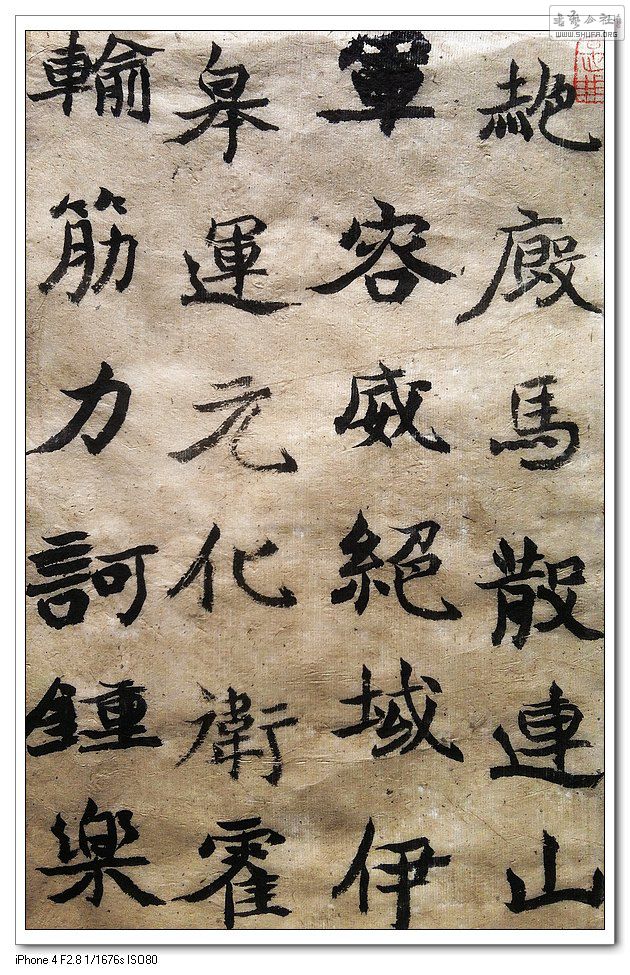 書藝公社
WWW.SHUFA.ORG
赩廏馬散連山
軍容威絕域伊
皋運元化衛霍
輸筋力訶鍾樂
iPhone 4 F2.8 1/1676s ISO80